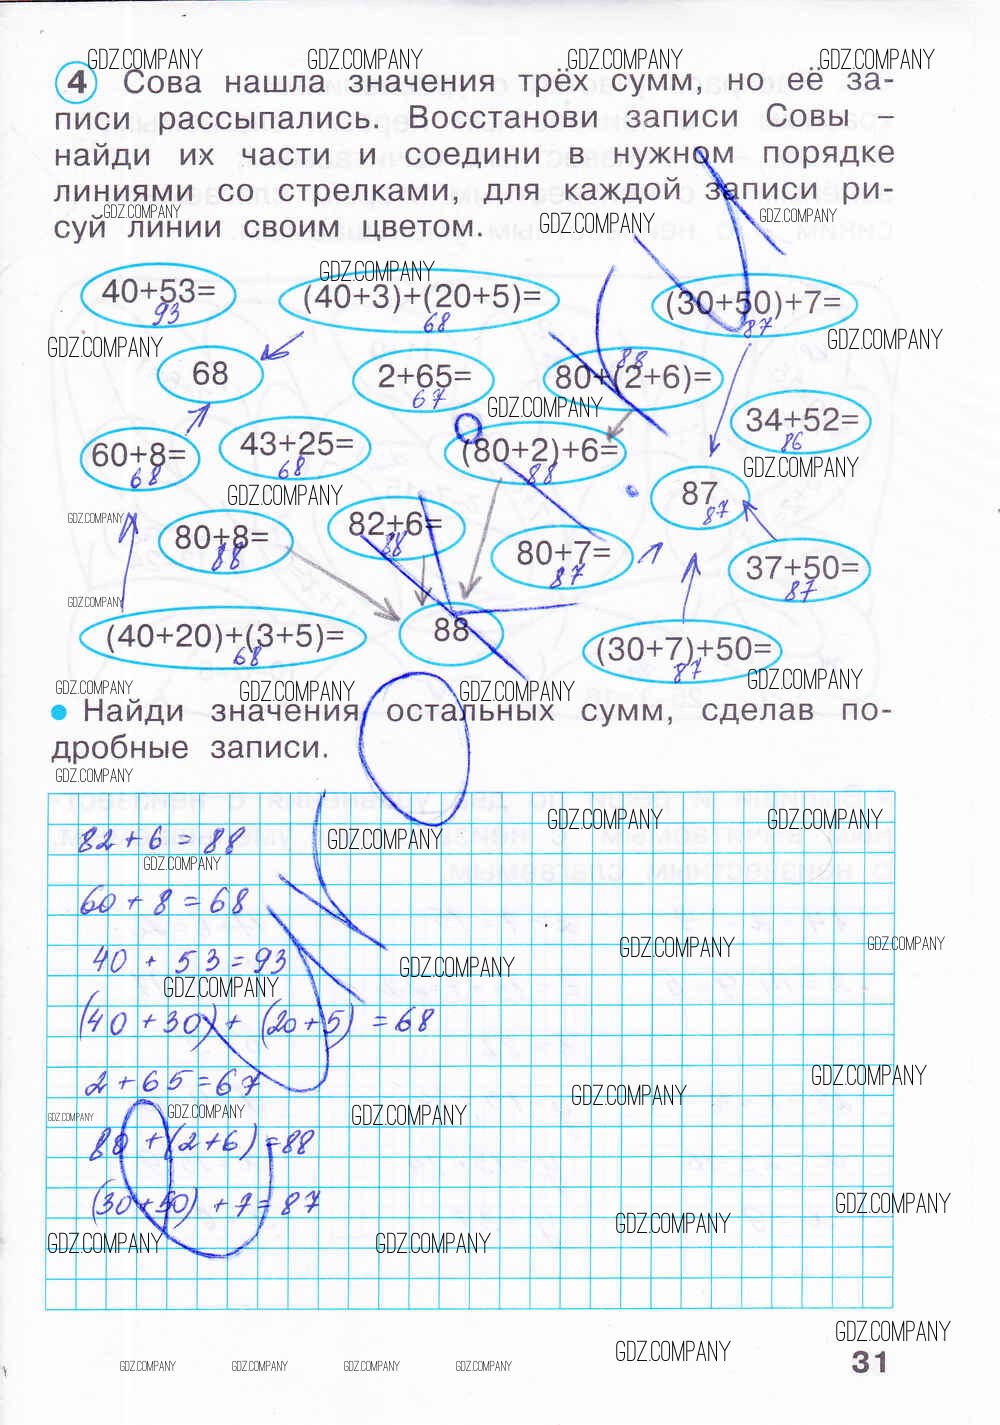 GDZ.COMPANY GDZ.COMPANY GDZ.COMPANY GDZ.COMPANY
4 Сова нашла значения трёх сумм, но её за-
писи рассыпались. Восстанови записи Совы –
найди их части и соедини в нужном порядке
линиями со стрелками, для каждой записи ри-
GDZ.COMPANY GDZ.COMPANY GDZ.COMPANY
суй линии своим цветом.
GDZ.COMPANY
40+53= (40+3)+(20+5)= (30+50)+7=
93 68 87
GDZ.COMPANY GDZ.COMPANY
68 2+65= 80+(2+6)=
67 88
GDZ.COMPANY
60+8= 43+25= (80+2)+6= 34+52=
68 68 88 86
GDZ.COMPANY GDZ.COMPANY
87
87
GDZ.COMPANY
80+8= 82+6= 80+7= 37+50=
88 88 87 87
GDZ.COMPANY
(40+20)+(3+5)= 88 (30+7)+50=
68 87
GDZ.COMPANY GDZ.COMPANY GDZ.COMPANY GDZ.COMPANY
Найди значения остальных сумм, сделав по-
дробные записи.
GDZ.COMPANY
GDZ.COMPANY GDZ.COMPANY
82+6=88 GDZ.COMPANY
GDZ.COMPANY
60+8=68
GDZ.COMPANY GDZ.COMPANY
40+53=93 GDZ.COMPANY
GDZ.COMPANY
(40+30)+(20+5)=68
2+65=67 GDZ.COMPANY
GDZ.COMPANY
GDZ.COMPANY GDZ.COMPANY GDZ.COMPANY
80+(2+6)=88
(30+50)+7=87 GDZ.COMPANY
GDZ.COMPANY
GDZ.COMPANY GDZ.COMPANY
GDZ.COMPANY
GDZ.COMPANY
GDZ.COMPANY GDZ.COMPANY GDZ.COMPANY GDZ.COMPANY
31